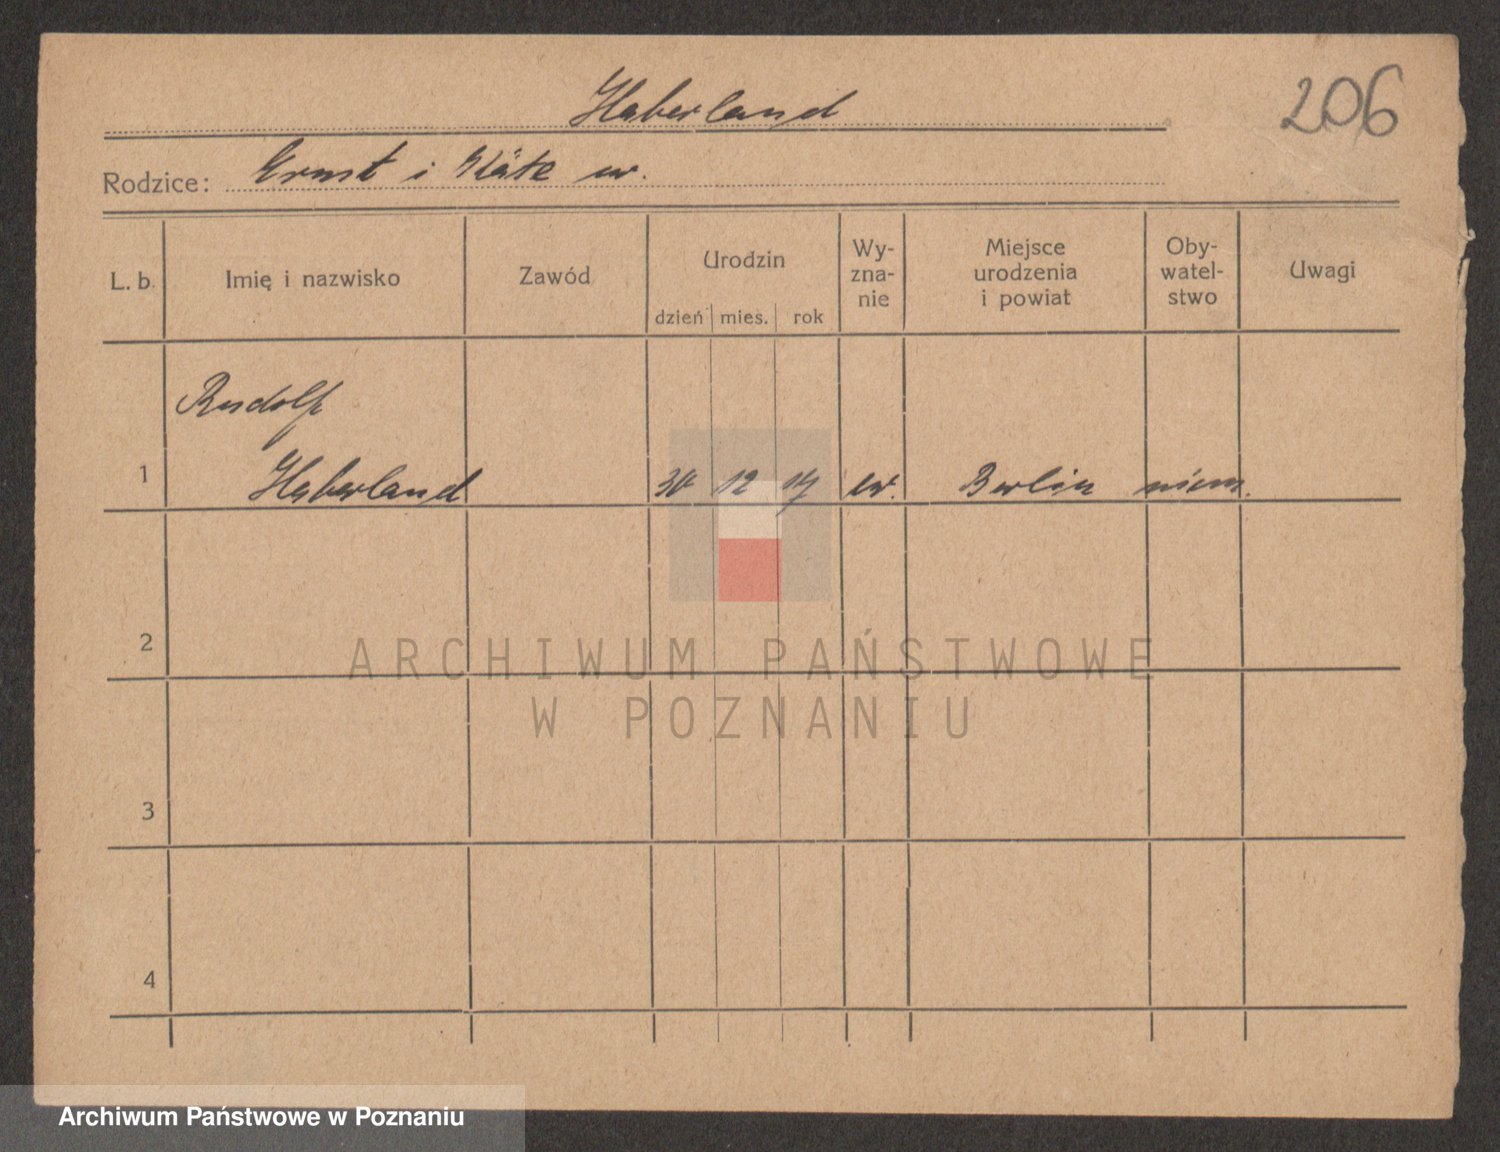 Haberland
206
Rodzice: Ernst i Käte ur.
L. b. Imię i nazwisko Zawód Urodzin dzień mies. rok Wy-zna-nie Miejsce urodzenia i powiat Oby-watel-stwo Uwagi
Rudolf
1 Haberland 30 12 14 ew. Berlin niem.
2
ARCHIWUM PAŃSTWOWE
W POZNANIU
3
4
Archiwum Państwowe w Poznaniu